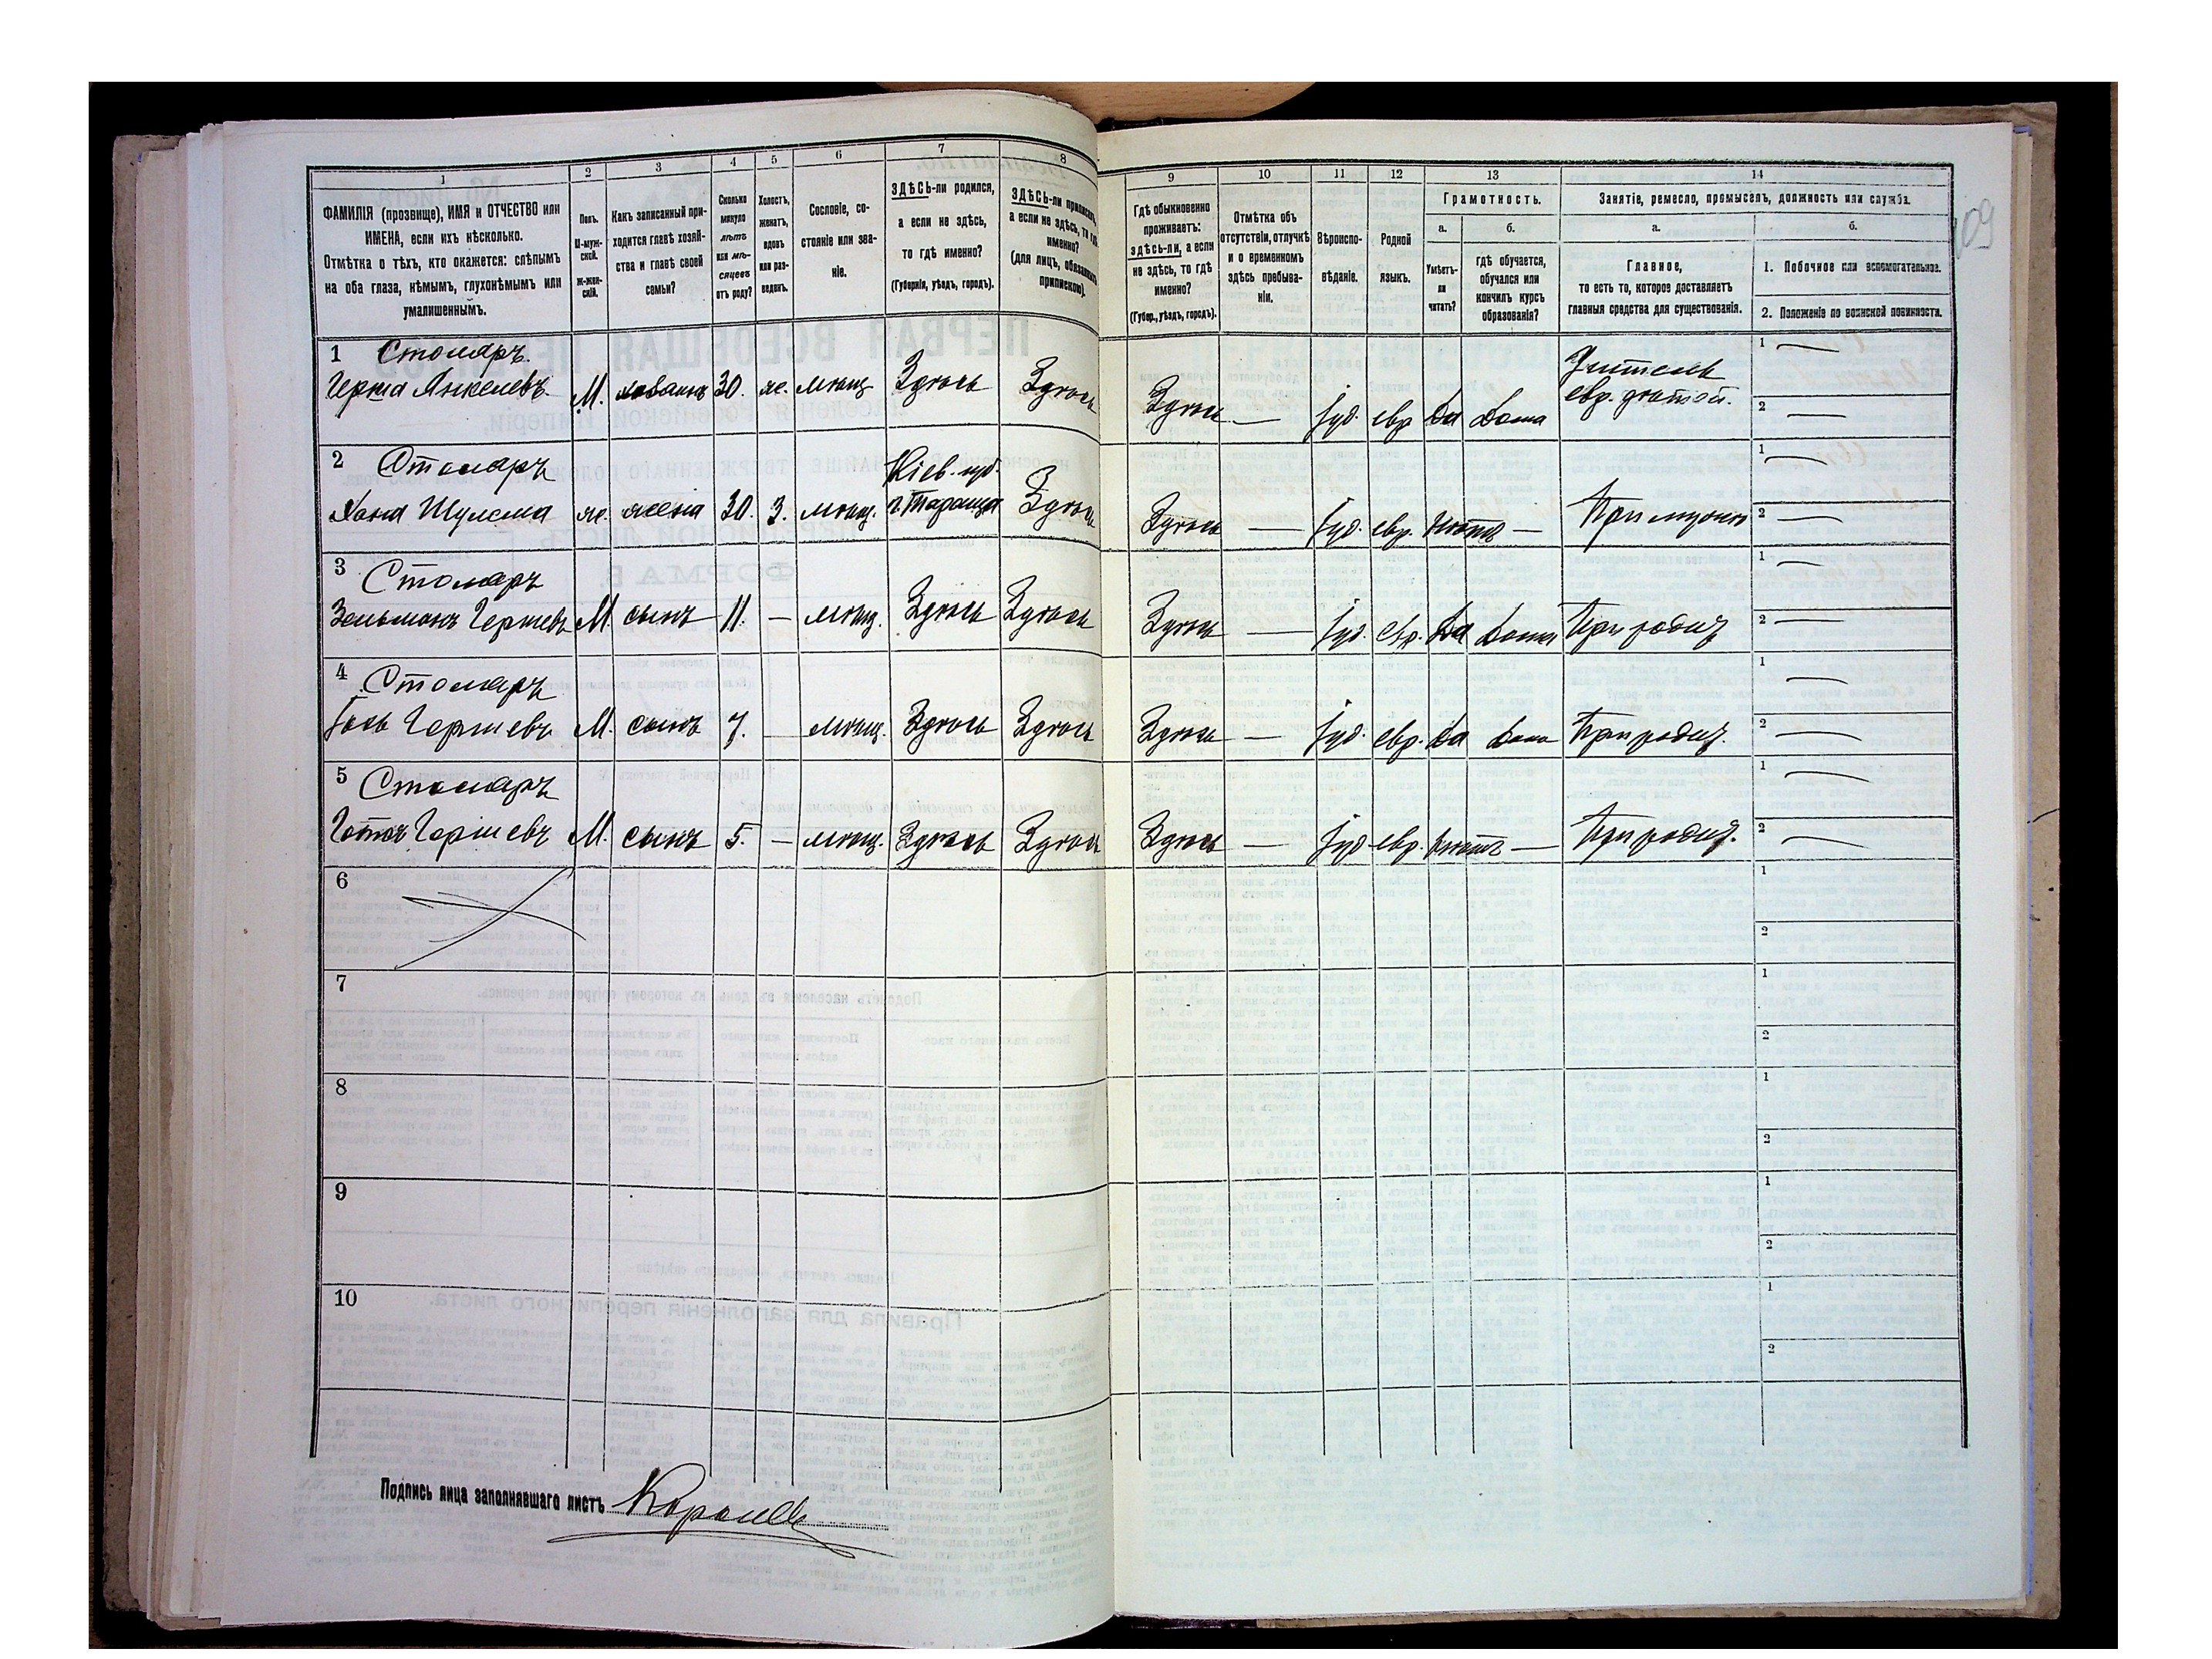 1 2 3 4 5 6 7 8
ФАМИЛІЯ (прозвище), ИМЯ и ОТЧЕСТВО или
ИМЕНА, если ихъ нѣсколько.
Отмѣтка о тѣхъ, кто окажется: слѣпымъ
на оба глаза, нѣмымъ, глухонѣмымъ или
умалишеннымъ.
Полъ.
М-муж-
ской.
Ж-жен-
скій.
Какъ записанный при-
ходится главѣ хозяй-
ства и главѣ своей
семьи?
Сколько
минуло
лѣтъ
или мѣ-
сяцевъ
отъ роду?
Холостъ,
женатъ,
вдовъ
или раз-
веденъ.
Сословіе, со-
стояніе или зва-
ніе.
ЗДѢСЬ-ли родился,
а если не здѣсь,
то гдѣ именно?
(Губернія, уѣздъ, городъ).
ЗДѢСЬ-ли приписанъ,
а если не здѣсь, то гдѣ
именно?
(для лицъ, обязанныхъ
припискою).
1 Столяръ
Герша Янкелевъ М. хозяинъ 30. же. мѣщ Здѣсь Здѣсь
2 Столяръ Кіев. губ.
Хана Шулема же. жена 30. З. мѣщ. г. Тараща Здѣсь
3 Столяръ
Зельманъ Гершевъ М. сынъ 11. — мѣщ. Здѣсь Здѣсь
4 Столяръ
Гершевъ М. сынъ 7. — мѣщ. Здѣсь Здѣсь
5 Столяръ
Гершевъ М. сынъ 5. — мѣщ. Здѣсь Здѣсь
6
7
8
9
10
Подпись лица заполнявшаго листъ
109
9 10 11 12 13 14
Гдѣ обыкновенно
проживаетъ:
здѣсь-ли, а если
не здѣсь, то гдѣ
именно?
(Губер., уѣздъ, городъ).
Отмѣтка объ
отсутствіи, отлучкѣ
и о временномъ
здѣсь пребыва-
ніи.
Вѣроиспо-
вѣданіе.
Родной
языкъ.
Грамотность.
а. б.
Умѣетъ-
ли
читать?
гдѣ обучается,
обучался или
кончилъ курсъ
образованія?
Занятіе, ремесло, промыселъ, должность или служба.
а. б.
Главное,
то есть то, которое доставляетъ
главныя средства для существованія.
1. Побочное или вспомогательное.
2. Положеніе по воинской повинности.
Учитель 1 —
Здѣсь — Іуд. евр да дома евр. дѣтей. 2 —
1 —
Здѣсь — Іуд. евр. нѣтъ — При мужѣ 2 —
1 —
Здѣсь — Іуд. евр. да дома При родит. 2 —
1 —
Здѣсь — Іуд. евр. да дома При родит. 2 —
1 —
Здѣсь — Іуд. евр. нѣтъ — При родит. 2 —
1
2
1
2
1
2
1
2
1
2